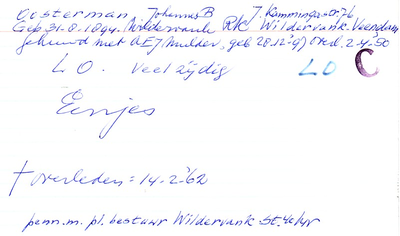 Oosterman Johannes B J. Kammingastr. 76
Geb. 31-8-1894. Wildervank RK Wildervank-Veendam
gehuwd met A E J Mulder, geb 28.12-'97 overl. 2-4-50
LO. Veelzijdig LO C
Eenjes
† overleden = 14-2-'62
penn.m. pl. bestuur Wildervank St.